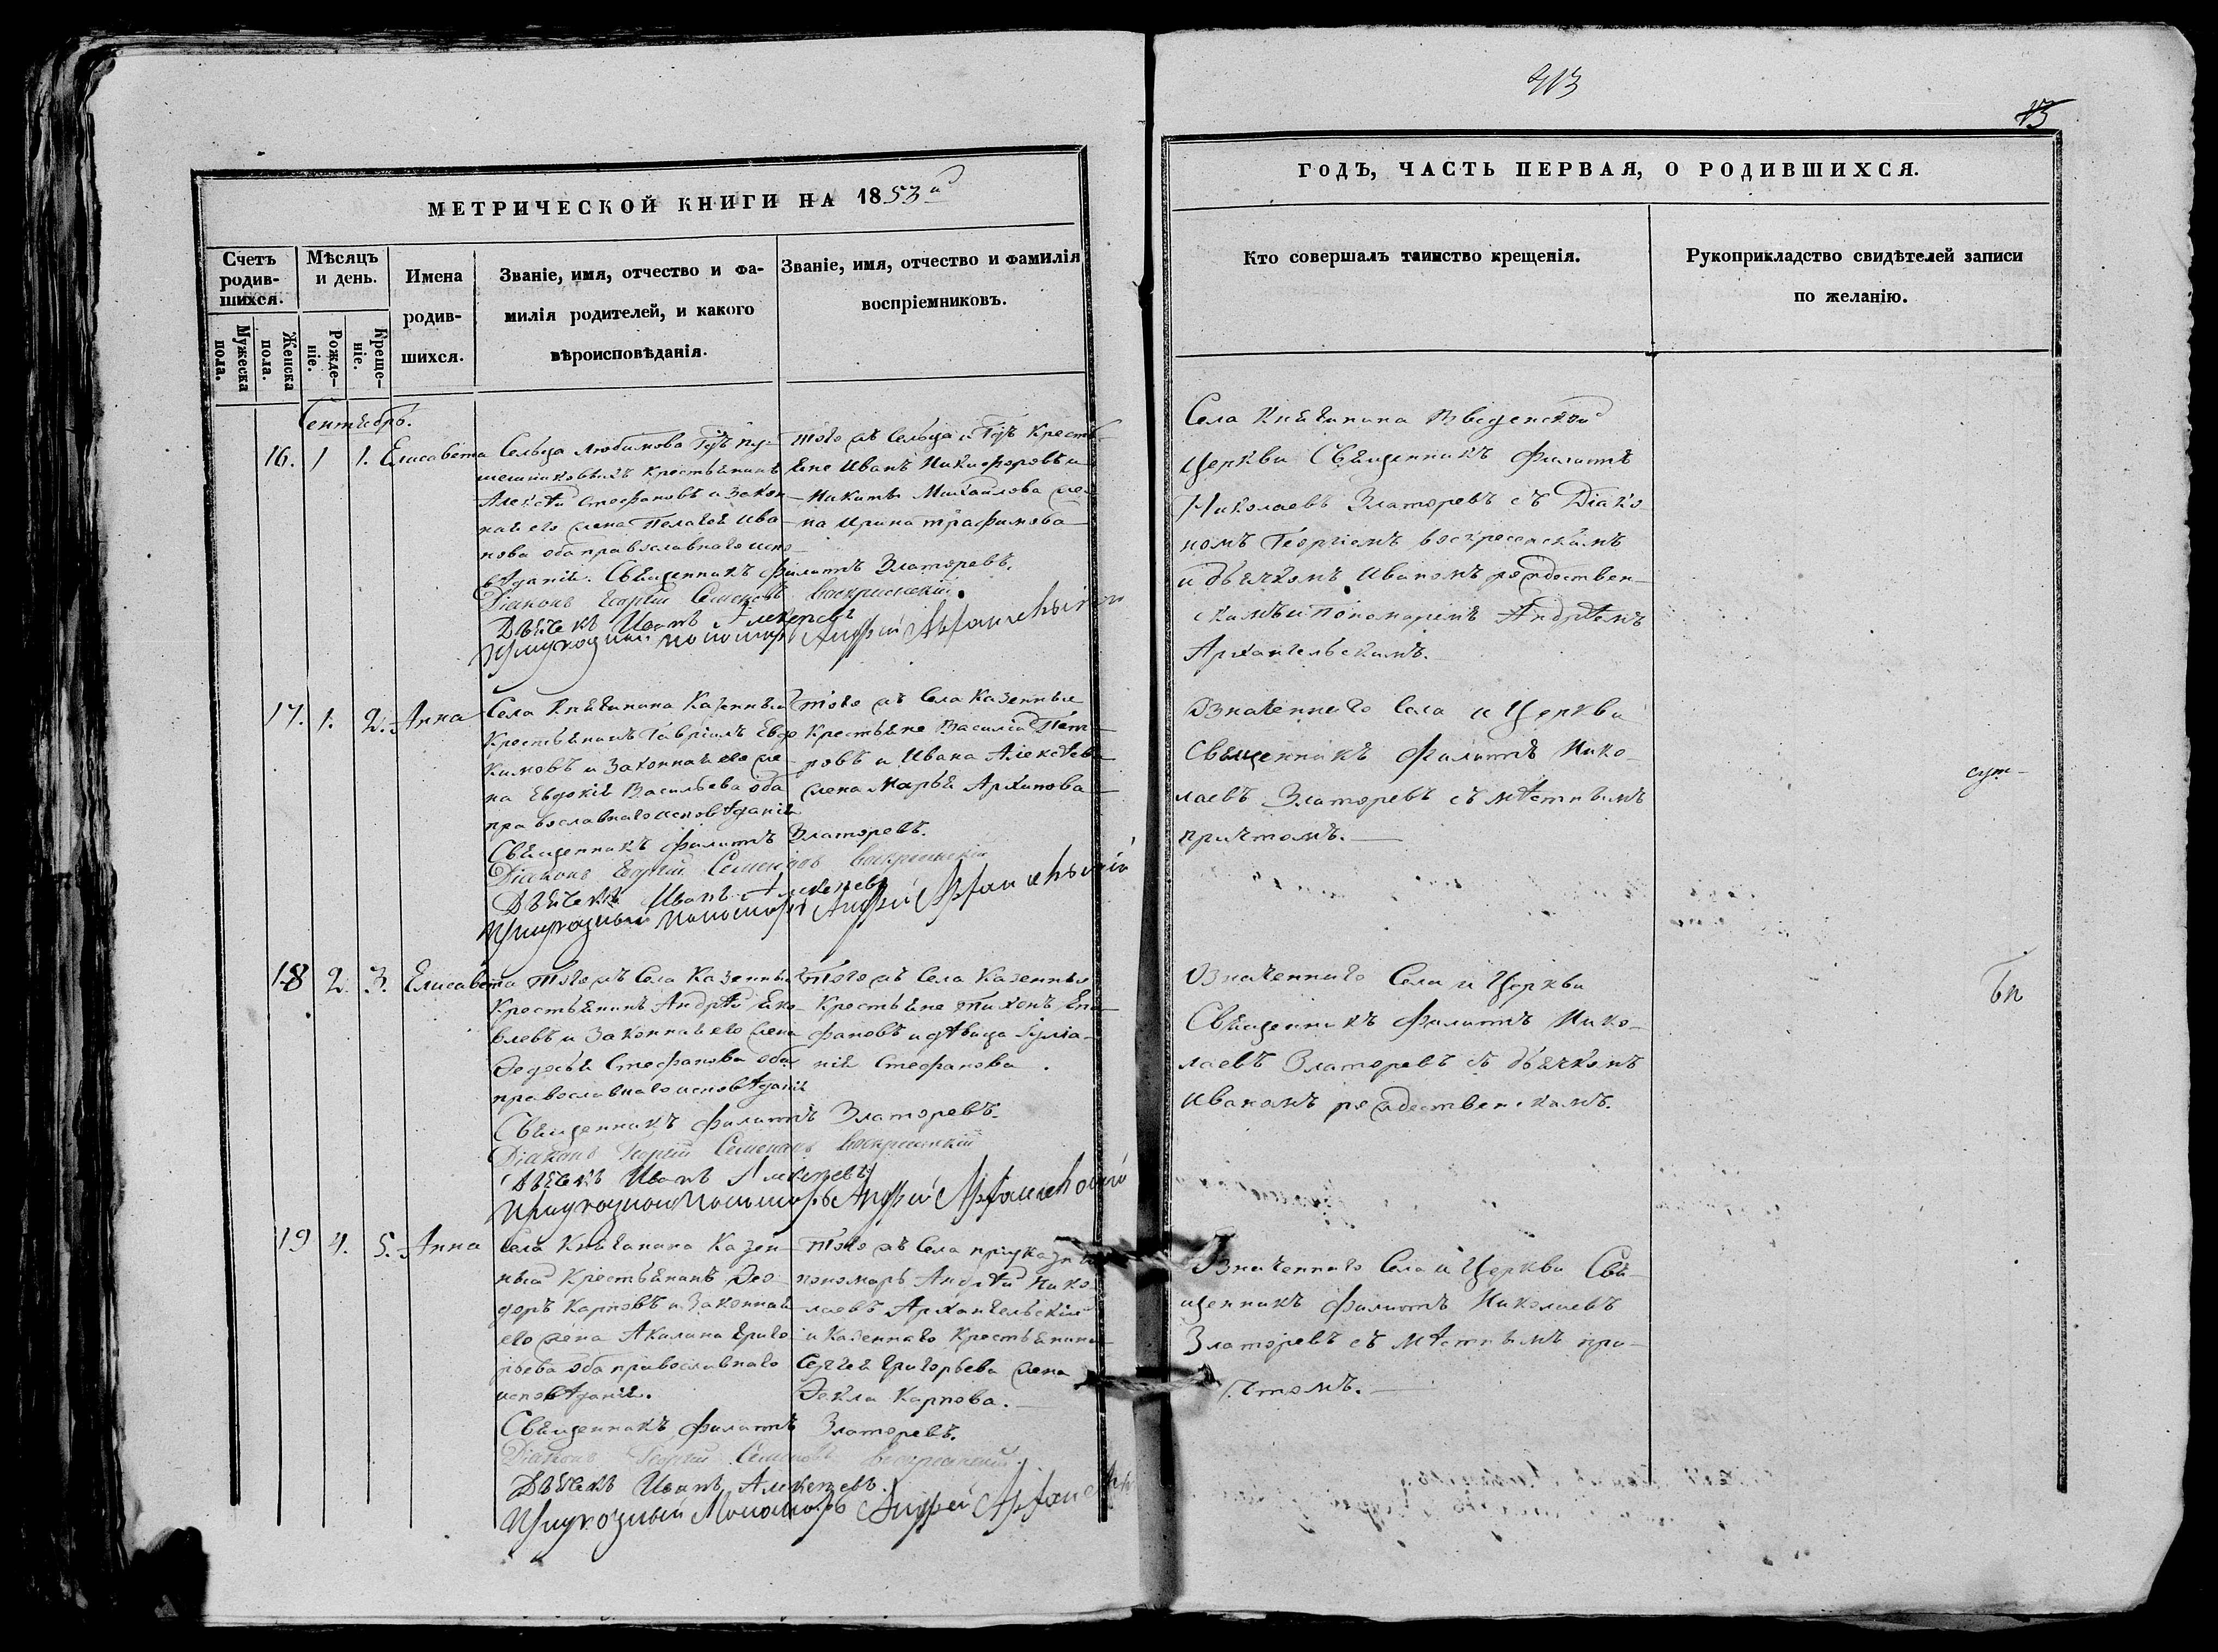 413
13
МЕТРИЧЕСКОЙ КНИГИ НА 1853й
Счетъ родив-шихся.
Мѣсяцъ и день.
Имена родив-шихся.
Званіе, имя, отчество и фа-
милія родителей, и какого
вѣроисповѣданія.
Званіе, имя, отчество и фамилія
воспріемниковъ.
Мужеска пола.
Женска пола.
Рожде-ніе.
Креще-ніе.
ГОДЪ, ЧАСТЬ ПЕРВАЯ, О РОДИВШИХСЯ.
Кто совершалъ таинство крещенія.
Рукоприкладство свидѣтелей записи
по желанію.
Сентябрь.
16. 1 1. Елисавета
Сельца Любимова Гдъ
крестьянинъ
Алексѣй Стефановъ и закон-
ная его жена Пелагея Ива-
нова оба православнаго испо-
вѣданія. Священникъ Филиппъ Златоревъ.
Діаконъ Георгій Семеновъ Воскресенскій.
Дьячекъ Иванъ Алексѣевъ
Приуказный пономарь Андрей Архангельскій
того жъ сельца и Гдъ кресть-
яне Иванъ Никифоровъ и
Никиты Михайлова же-
на Ирина Трафимова
Села Княгинина Введенской
Церкви Священникъ Филиппъ
Николаевъ Златоревъ съ Діако
номъ Георгіемъ Воскресенскимъ
и дьячкомъ Иваномъ рождествен-
скимъ и пономаремъ Андрѣемъ
Архангельскимъ.
17. 1. 2. Анна
Села Княгинина Казенный
Крестьянинъ Гавріилъ Евдо
кимовъ и законная его же-
на Евдокія Васильева оба
православнаго исповѣданія
Священникъ Филиппъ Златоревъ.
Діаконъ Георгій Семеновъ Воскресенскій
Дьячекъ Иванъ Алексѣевъ
Приуказный пономарь Андрей Архангельскій
того жъ Села Казенные
Крестьяне Василій Пет-
ровъ и Ивана Алексѣева
жена Марья Архипова
Означеннаго Села и Церкви
Священникъ Филиппъ Нико-
лаевъ Златоревъ съ мѣстнымъ
причтомъ.
18 2. 3. Елисавета
Того жъ Села Казенный
Крестьянинъ Андрѣй Яко-
влевъ и законная его жена
Ѳедосья Стефанова оба
православнаго исповѣданія
Священникъ Филиппъ Златоревъ.
Діаконъ Георгій Семеновъ Воскресенскій
Дьячекъ Иванъ Алексѣевъ
Приуказный пономарь Андрей Архангельскій
Того жъ Села Казенные
Крестьяне Тихонъ Епи-
фановъ и дѣвица Іуліа-
нія Стефанова.
Означеннаго Села и Церкви
Священникъ Филиппъ Нико-
лаевъ Златоревъ съ дьячкомъ
Иваномъ рождественскимъ.
19 4. 5. Анна
Села Княгинина Казен-
ный Крестьянинъ Ѳео-
доръ Карповъ и законная
его жена Акилина Григо
рьева оба православнаго
исповѣданія.
Священникъ Филиппъ Златоревъ.
Діаконъ Георгій Семеновъ Воскресенскій.
Дьячекъ Иванъ Алексѣевъ.
Приуказный Пономарь Андрей Архангельск
Того жъ Села приуказный
пономарь Андрѣй Нико-
лаевъ Архангельскій
и Казеннаго Крестьянина
Сергея Григорьева жена
Ѳекла Карпова.
Означеннаго Села и Церкви Свя-
щенникъ Филиппъ Николаевъ
Златоревъ съ мѣстнымъ при-
чтомъ.